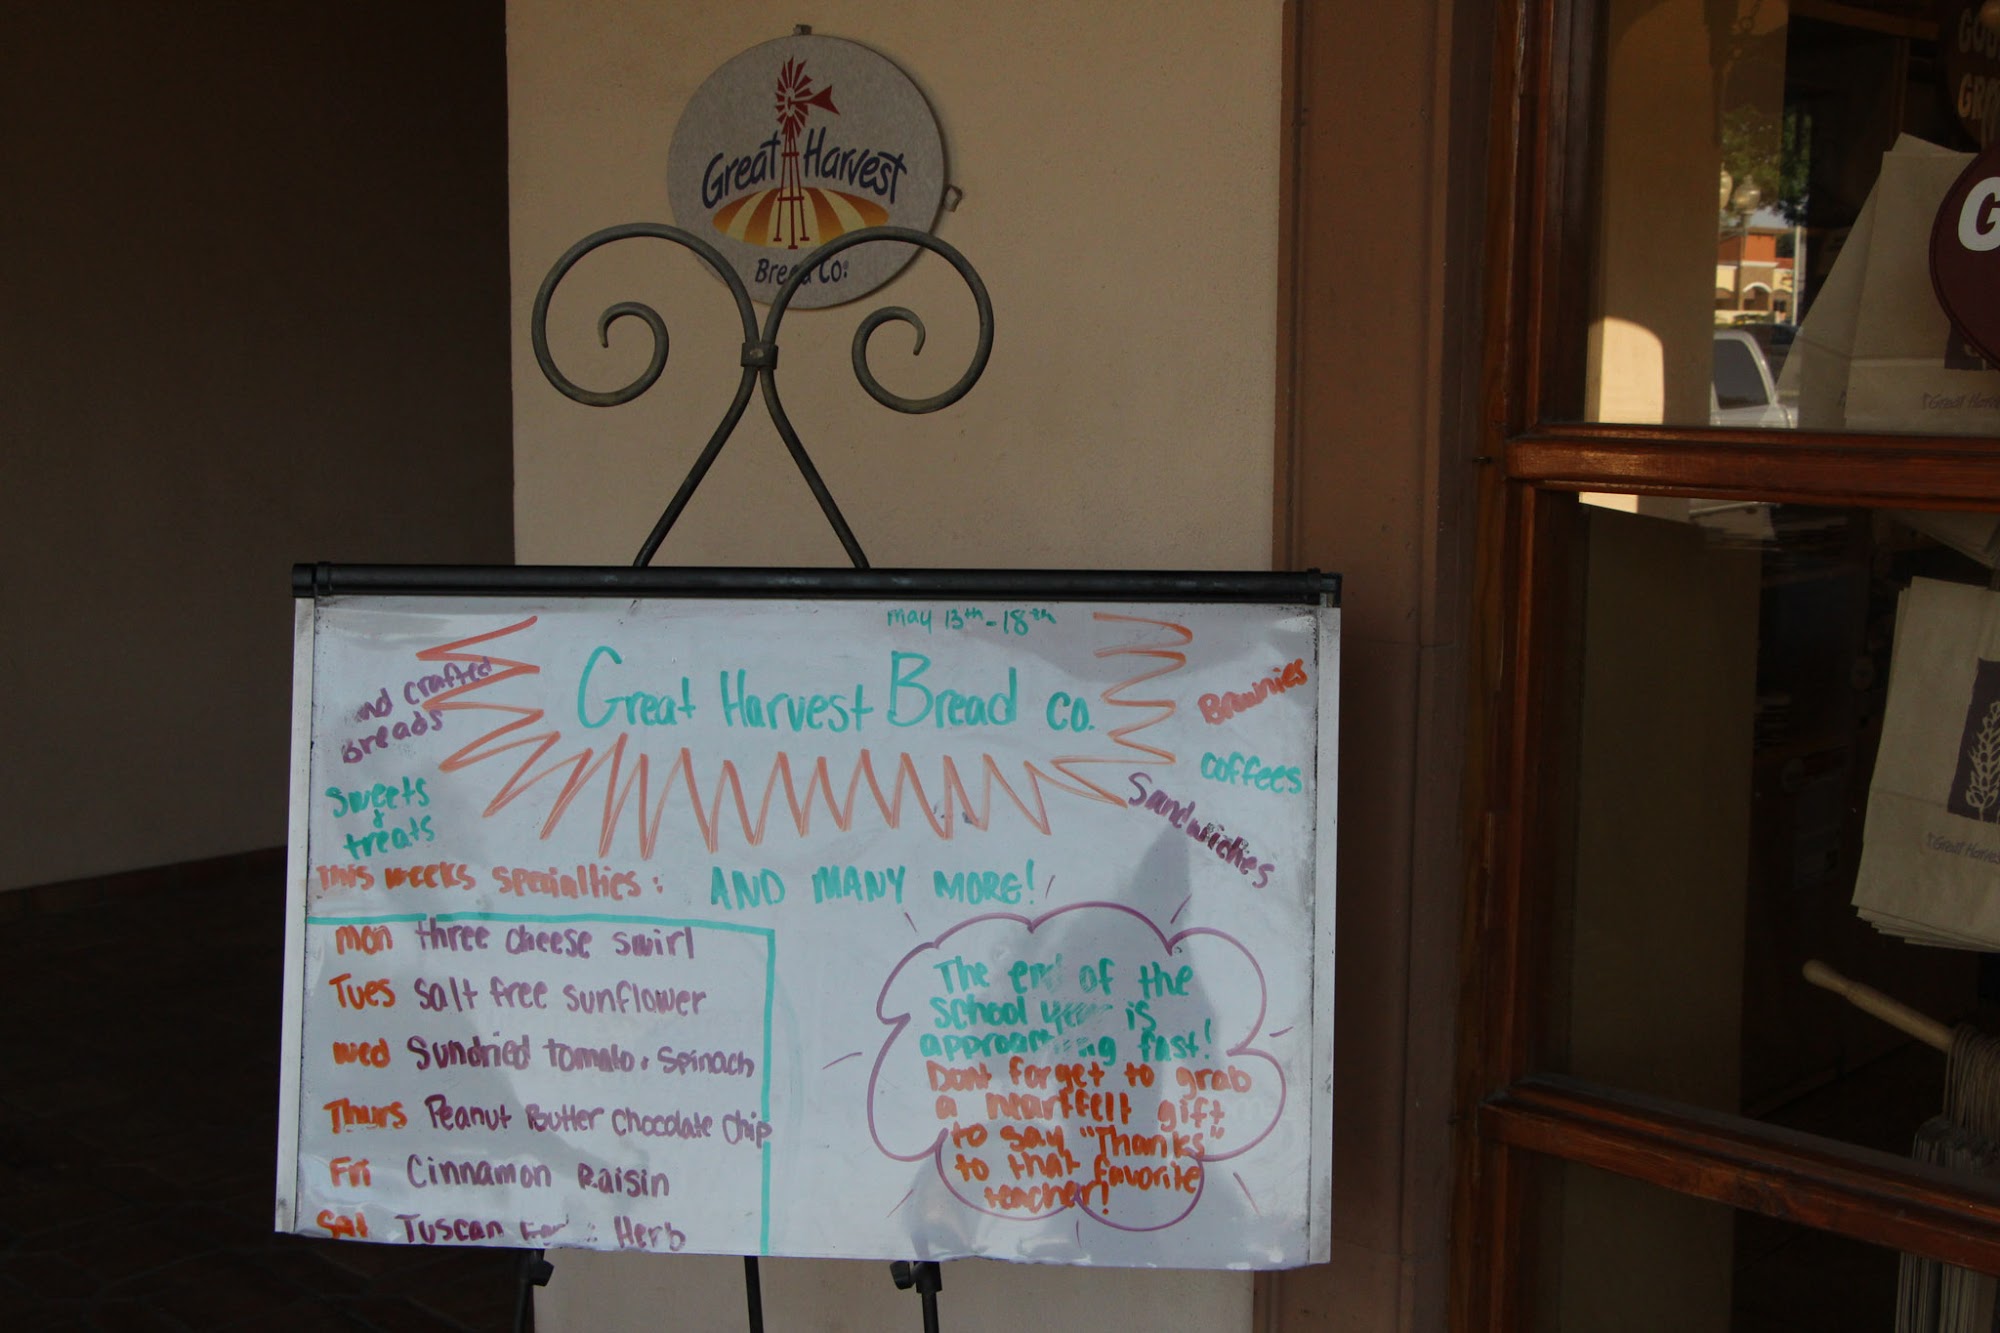 Great Harvest
Bread Co.
May 13th-18th
Great Harvest Bread Co.
crafted
Breads
Sweets
&
treats
Brownies
Coffees
Sandwiches
This weeks specialties:
AND MANY MORE!
Mon three cheese swirl
Tues Salt free sunflower
Wed Sundried tomato & Spinach
Thurs Peanut Butter Chocolate Chip
Fri Cinnamon Raisin
Sat Tuscan Herb
The end of the
school year is
approaching fast!
Dont forget to grab
a heartfelt gift
to say "Thanks"
to that favorite
teacher!
G
Great Harvest